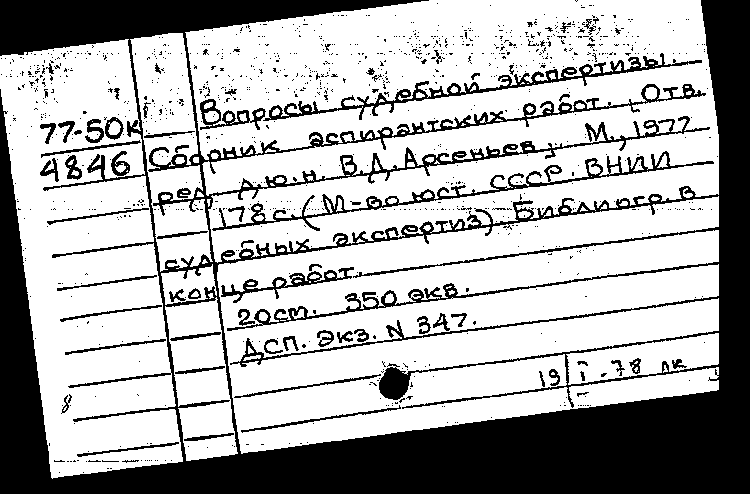 77-50к
4846
Вопросы судебной экспертизы.
Сборник аспирантских работ. [Отв.
ред. д.ю.н. В.Д. Арсеньев]. М., 1977
178 с. (М-во юст. СССР. ВНИИ
судебных экспертиз). Библиогр. в
конце работ.
20см. 350 экв.
ДСП. Экз. N 347.
8
19 I-78 лк